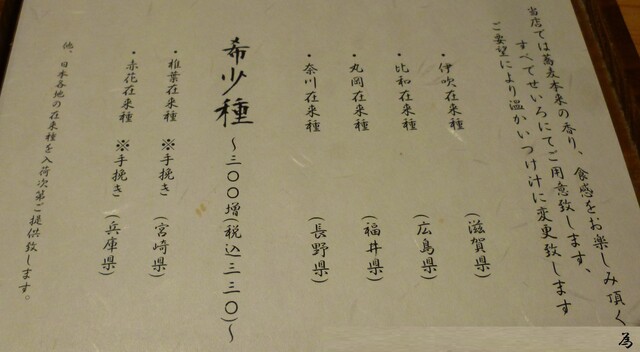 当店では蕎麦本来の香り、食感をお楽しみ頂く為
すべてせいろにてご用意致します、
ご要望により温かいつけ汁に変更致します
・伊吹在来種 (滋賀県)
・比和在来種 (広島県)
・丸岡在来種 (福井県)
・奈川在来種 (長野県)
希少種 〜三〇〇増(税込三三〇)〜
・椎葉在来種 ※手挽き (宮崎県)
・赤花在来種 ※手挽き (兵庫県)
他、日本各地の在来種を入荷次第ご提供致します。